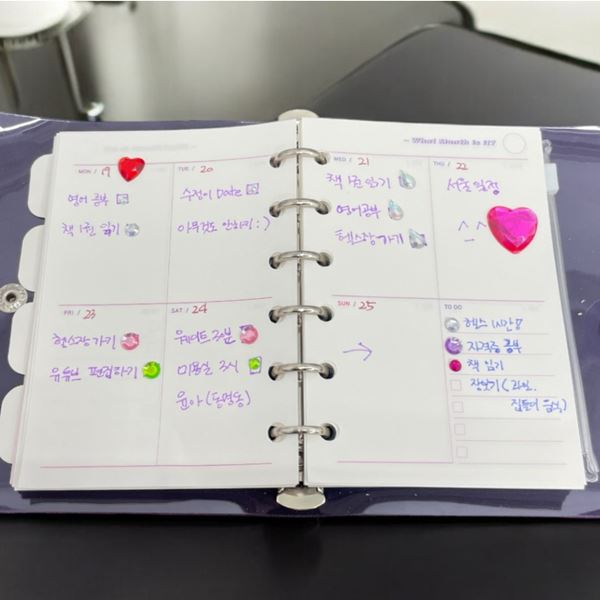 - What Month Is It?
MON / 19
영어 공부
책 1권 읽기
TUE / 20
수정이 Date
아무것도 안하기 : )
WED / 21
책 1권 읽기
영어공부
헬스장 가기
THU / 22
서울 일정
^_^
FRI / 23
헬스장 가기
유튜브 편집하기
SAT / 24
미용실 3시
윤아 (동명동)
SUN / 25
→
TO DO
헬스 1시간 !!
자격증 공부
책 읽기
장보기 ( 과일,
집들이 음식)